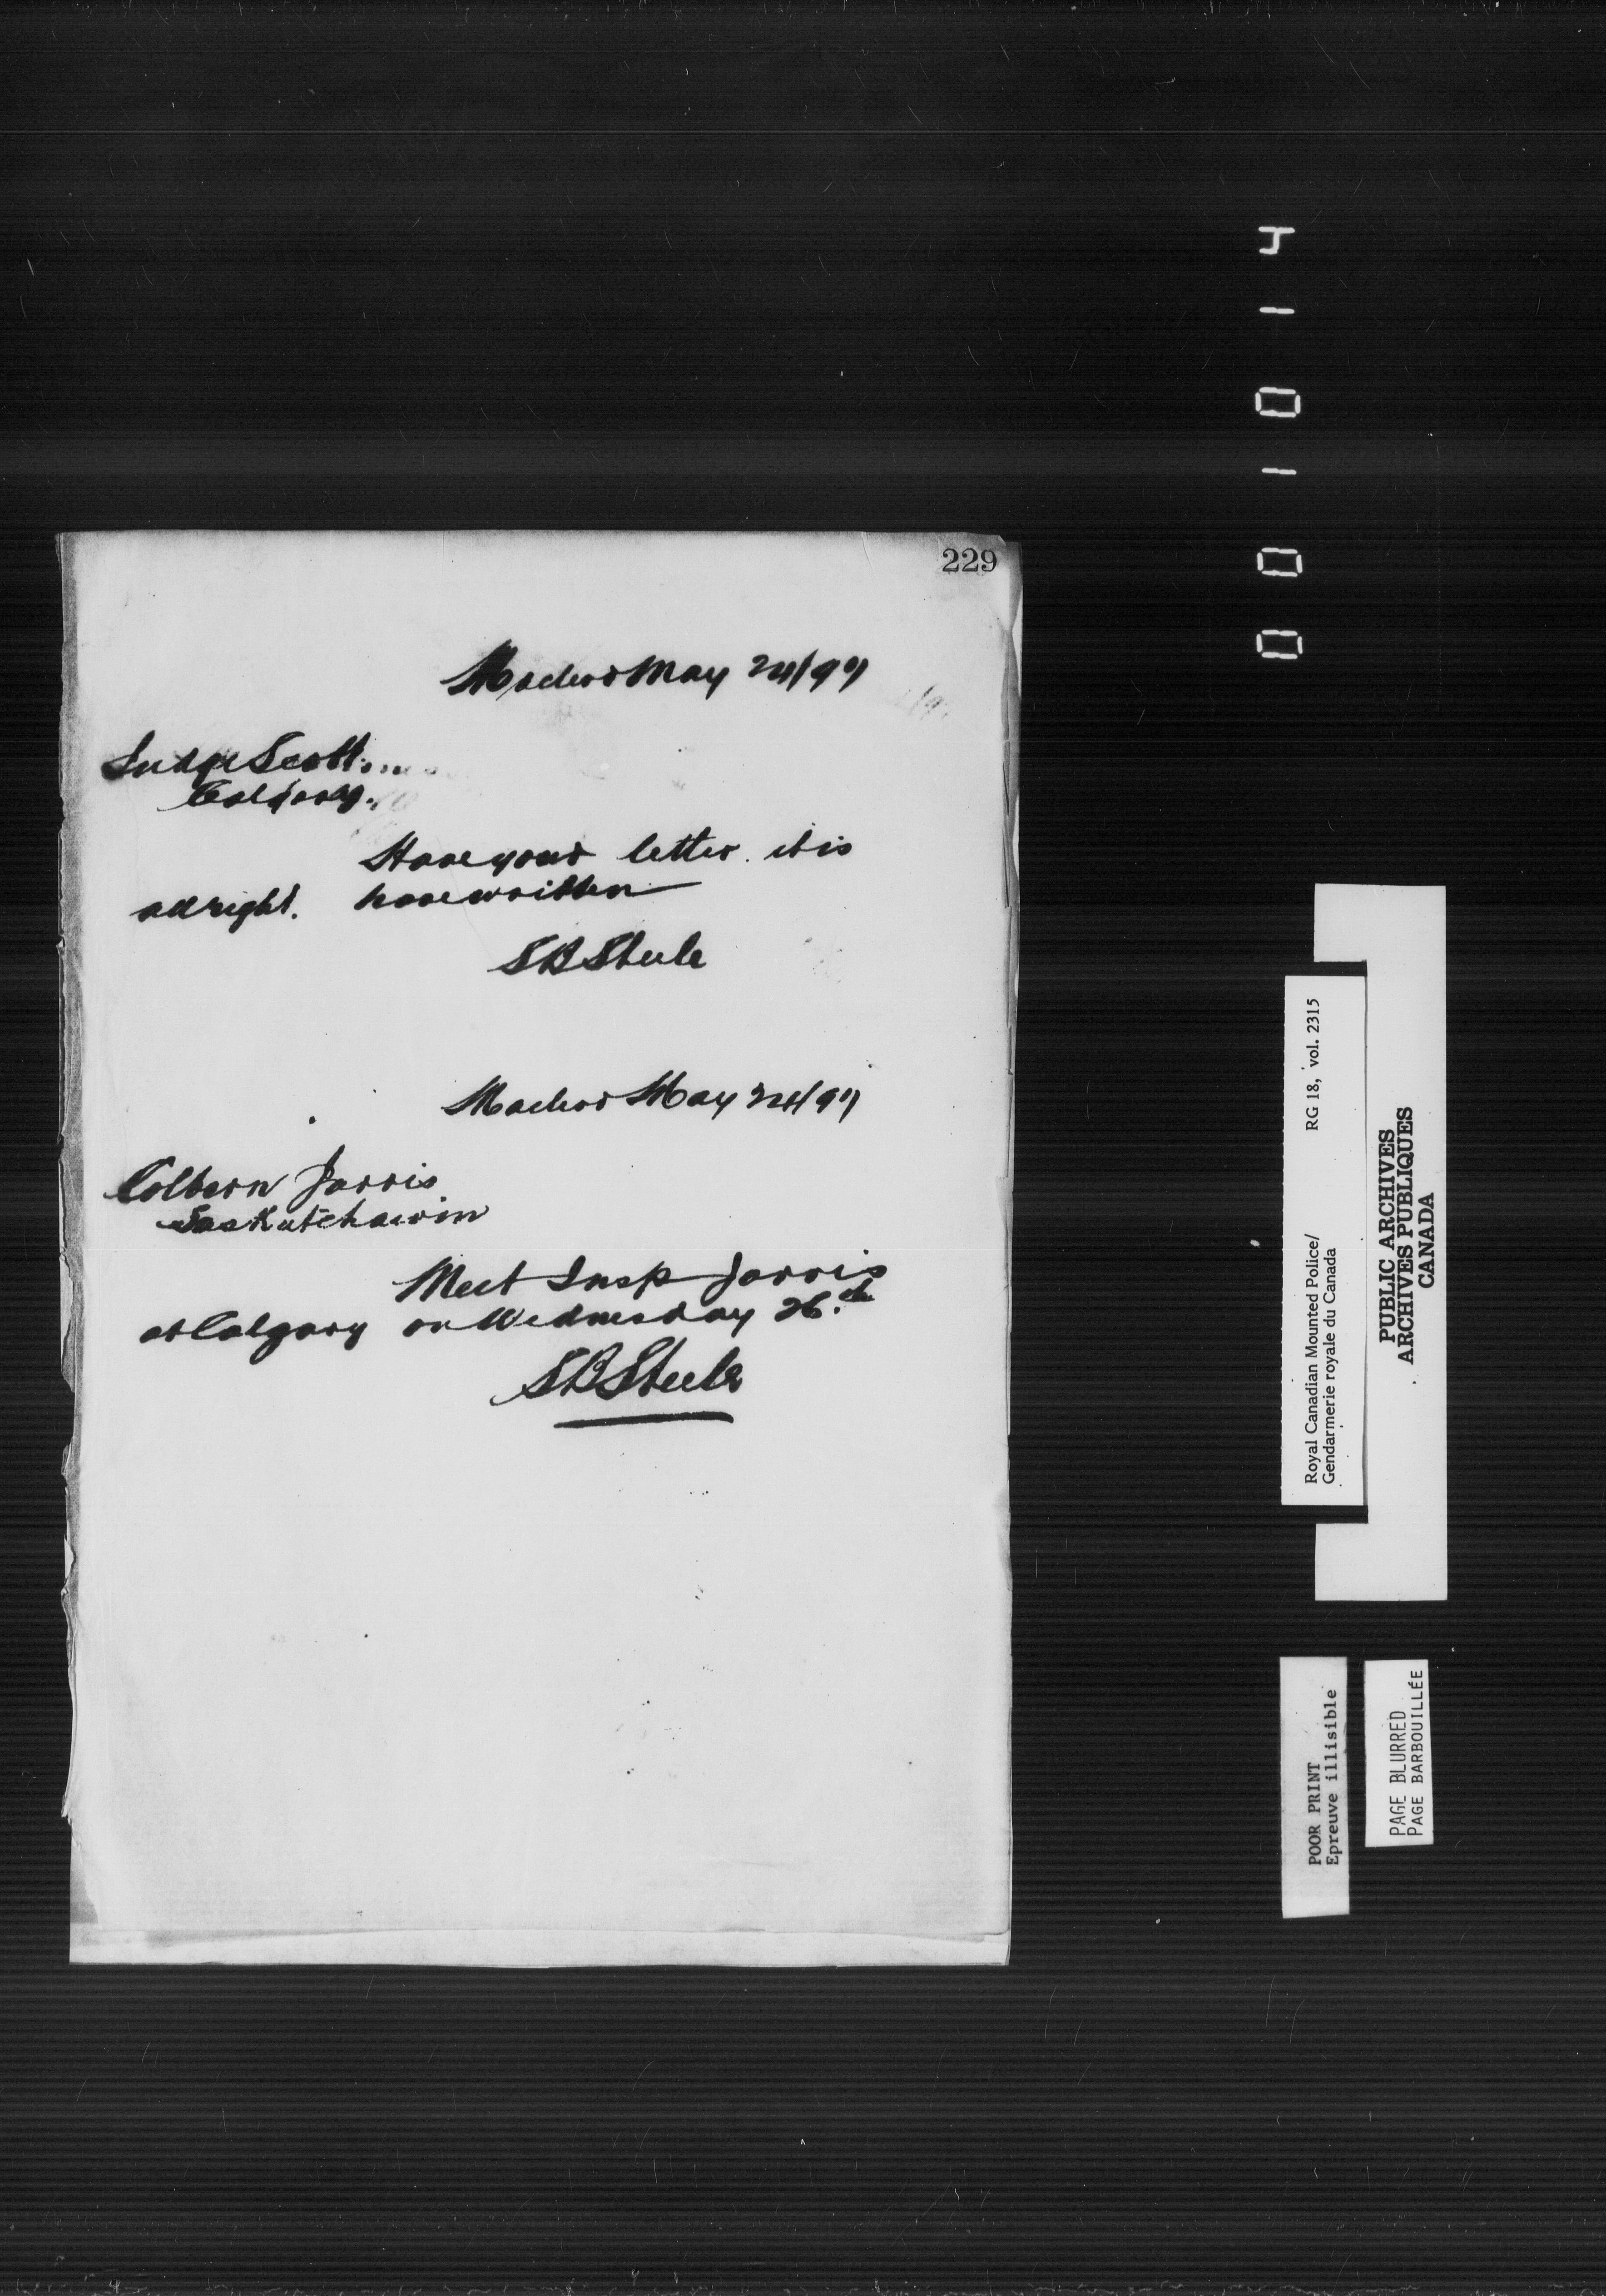 229
Macleod May 24/97
Judge Scott.
Calgary.
Have your letter. it is
all right. have written
S B Steele
Macleod May 24/97
Colbern Jarvis
Saskatchewin
Meet Insp Jarvis
at Calgary on Wednesday 26.th
S B Steele
J - 0 - 0 0
Royal Canadian Mounted Police/ RG 18, vol. 2315
Gendarmerie royale du Canada
PUBLIC ARCHIVES
ARCHIVES PUBLIQUES
CANADA
POOR PRINT
Epreuve illisible
PAGE BLURRED
PAGE BARBOUILLÉE